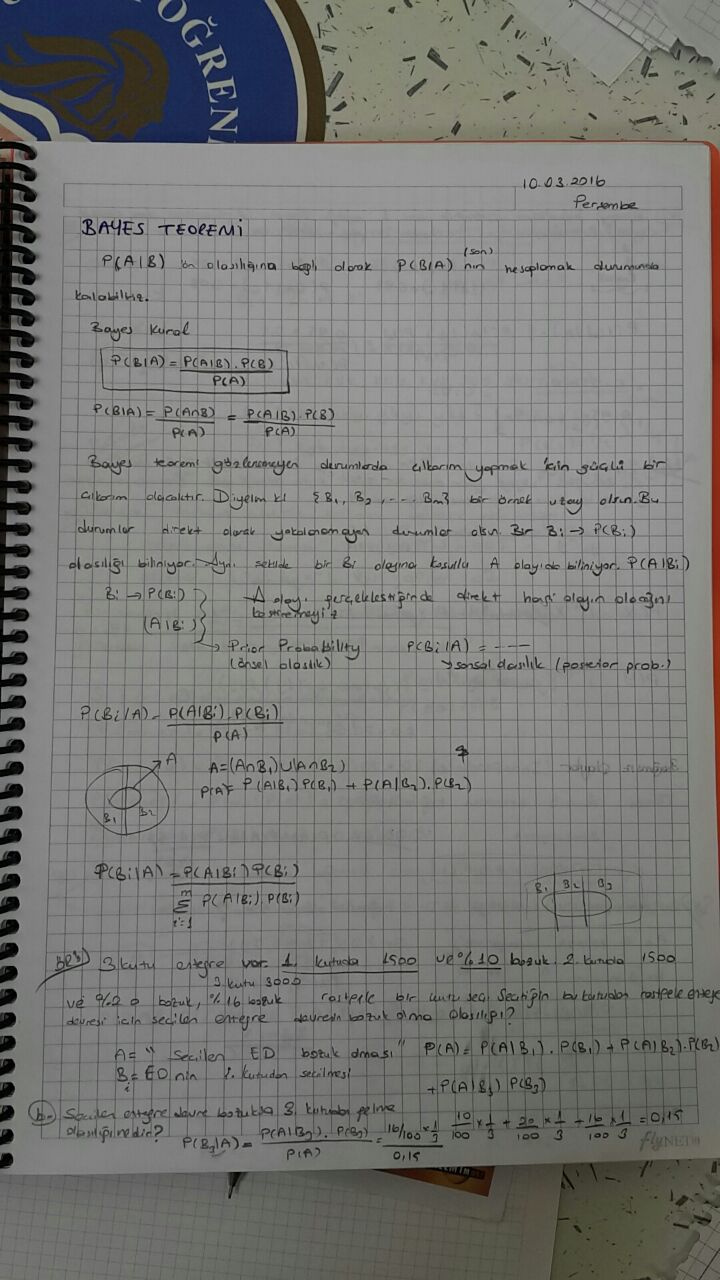 ÖĞRENİ
10.03.2016
Persembe
BAYES TEOREMİ
P(A|B) ön olasılığına bağlı olarak P(B|A) (son) nın hesaplamak durumunda
kalabiliriz.
Bayes Kuralı
P(B|A) = P(A|B) . P(B) / P(A)
P(B|A) = P(A∩B) / P(A) = P(A|B) . P(B) / P(A)
Bayes teoremi gözlenemeyen durumlarda çıkarım yapmak için güçlü bir
çıkarım olacaktır. Diyelim ki {B1, B2, --- Bm} bir örnek uzay olsun. Bu
durumlar direkt olarak yakalanamayan durumlar olsun. Bir Bi → P(Bi)
olasılığı biliniyor. Aynı sekilde bir Bi olayına kosullu A olayıda biliniyor. P(A|Bi)
Bi → P(Bi) A olayı gerçekleştiğinde direkt hangi olayın olduğunu
(A|Bi) kestiremeyiz
→ Prior Probability P(Bi|A) = ----
(önsel olasılık) → sonsal olasılık (posterior prob.)
P(Bi|A) = P(A|Bi) . P(Bi) / P(A)
A A=(A∩B1)∪(A∩B2)
B1 B2 P(A)= P(A|B1) P(B1) + P(A|B2) . P(B2)
P(Bi|A) = P(A|Bi) P(Bi) / m Σ i=1 P(A|Bi) P(Bi)
B1 B2 B3
3 kutu entegre var. 1. kutuda 1500 ve %10 bozuk. 2. kutuda 1500
3. kutu 3000
ve %20 bozuk, %16 bozuk rastgele bir kutu seçi Seçtiğin bu kutudan rastgele entegre
devresi için seçilen entegre devrenin bozuk olma olasılığı?
A= " Seçilen ED bozuk olması" P(A) = P(A|B1) . P(B1) + P(A|B2) . P(B2)
Bi = ED nin i. kutudan secilmesi
+ P(A|B3) P(B3)
b- Seçilen entegre devre bozuksa 3. kutudan gelme
10/100 x 1/3 + 20/100 x 1/3 + 16/100 x 1/3 = 0,15
olasılığı nedir?
P(B3|A) = P(A|B3) . P(B3) / P(A) = 16/100 x 1/3 / 0,15
flyNET